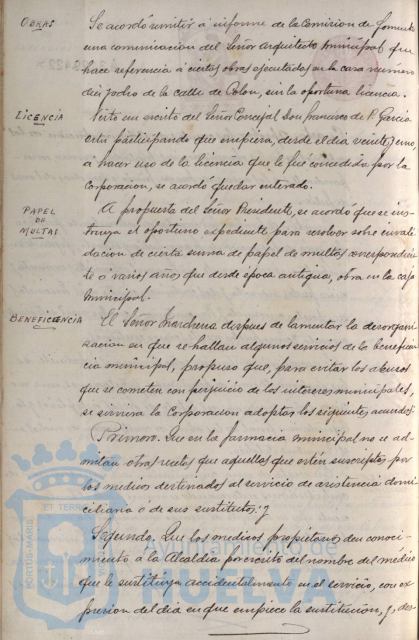 OBRAS
Se acordó remitir á informe de la Comision de Fomento
una comunicacion del Señor Arquitecto municipal que
hace referencia á ciertas obras ejecutadas en la casa número
dies y ocho de la calle de Colon, sin la oportuna licencia.
LICENCIA
Visto un escrito del Señor Concejal Don Francisco de P. García
participando que empieza, desde el dia veinte y uno,
á hacer uso de la licencia que le fué concedida por la
Corporacion, se acordó quedar enterado.
PAPEL
DE
MULTAS
A propuesta del Señor Presidente, se acordó que se ins-
truya el oportuno expediente para resolver sobre invali-
dacion de cierta suma de papel de multas correspondien-
te á varios años que desde época antigua, obra en la caja
municipal.
BENEFICENCIA
El Señor Marchena despues de lamentar la desorgani-
zacion en que se hallan algunos servicios de la beneficen-
cia municipal, propuso que, para evitar los abusos
que se cometen con perjuicio de los intereses municipales,
se sirviera la Corporacion adoptar los siguientes acuerdos:
Primero. Que en la farmacia municipal no se ad-
mitan otras recetas que aquellas que estén suscriptas por
los medicos destinados al servicio de asistencia domi-
ciliaria ó de sus sustitutos: y
Segundo. Que los medicos propietarios den conoci-
miento á la Alcaldia por escrito del nombre del médico
que le sustituya accidentalmente en el servicio, con ex-
presion del dia en que empiece la sustitucion, y, des-
PORTUS MARIS
ET TERRÆ
Ayuntamiento de
HUELVA